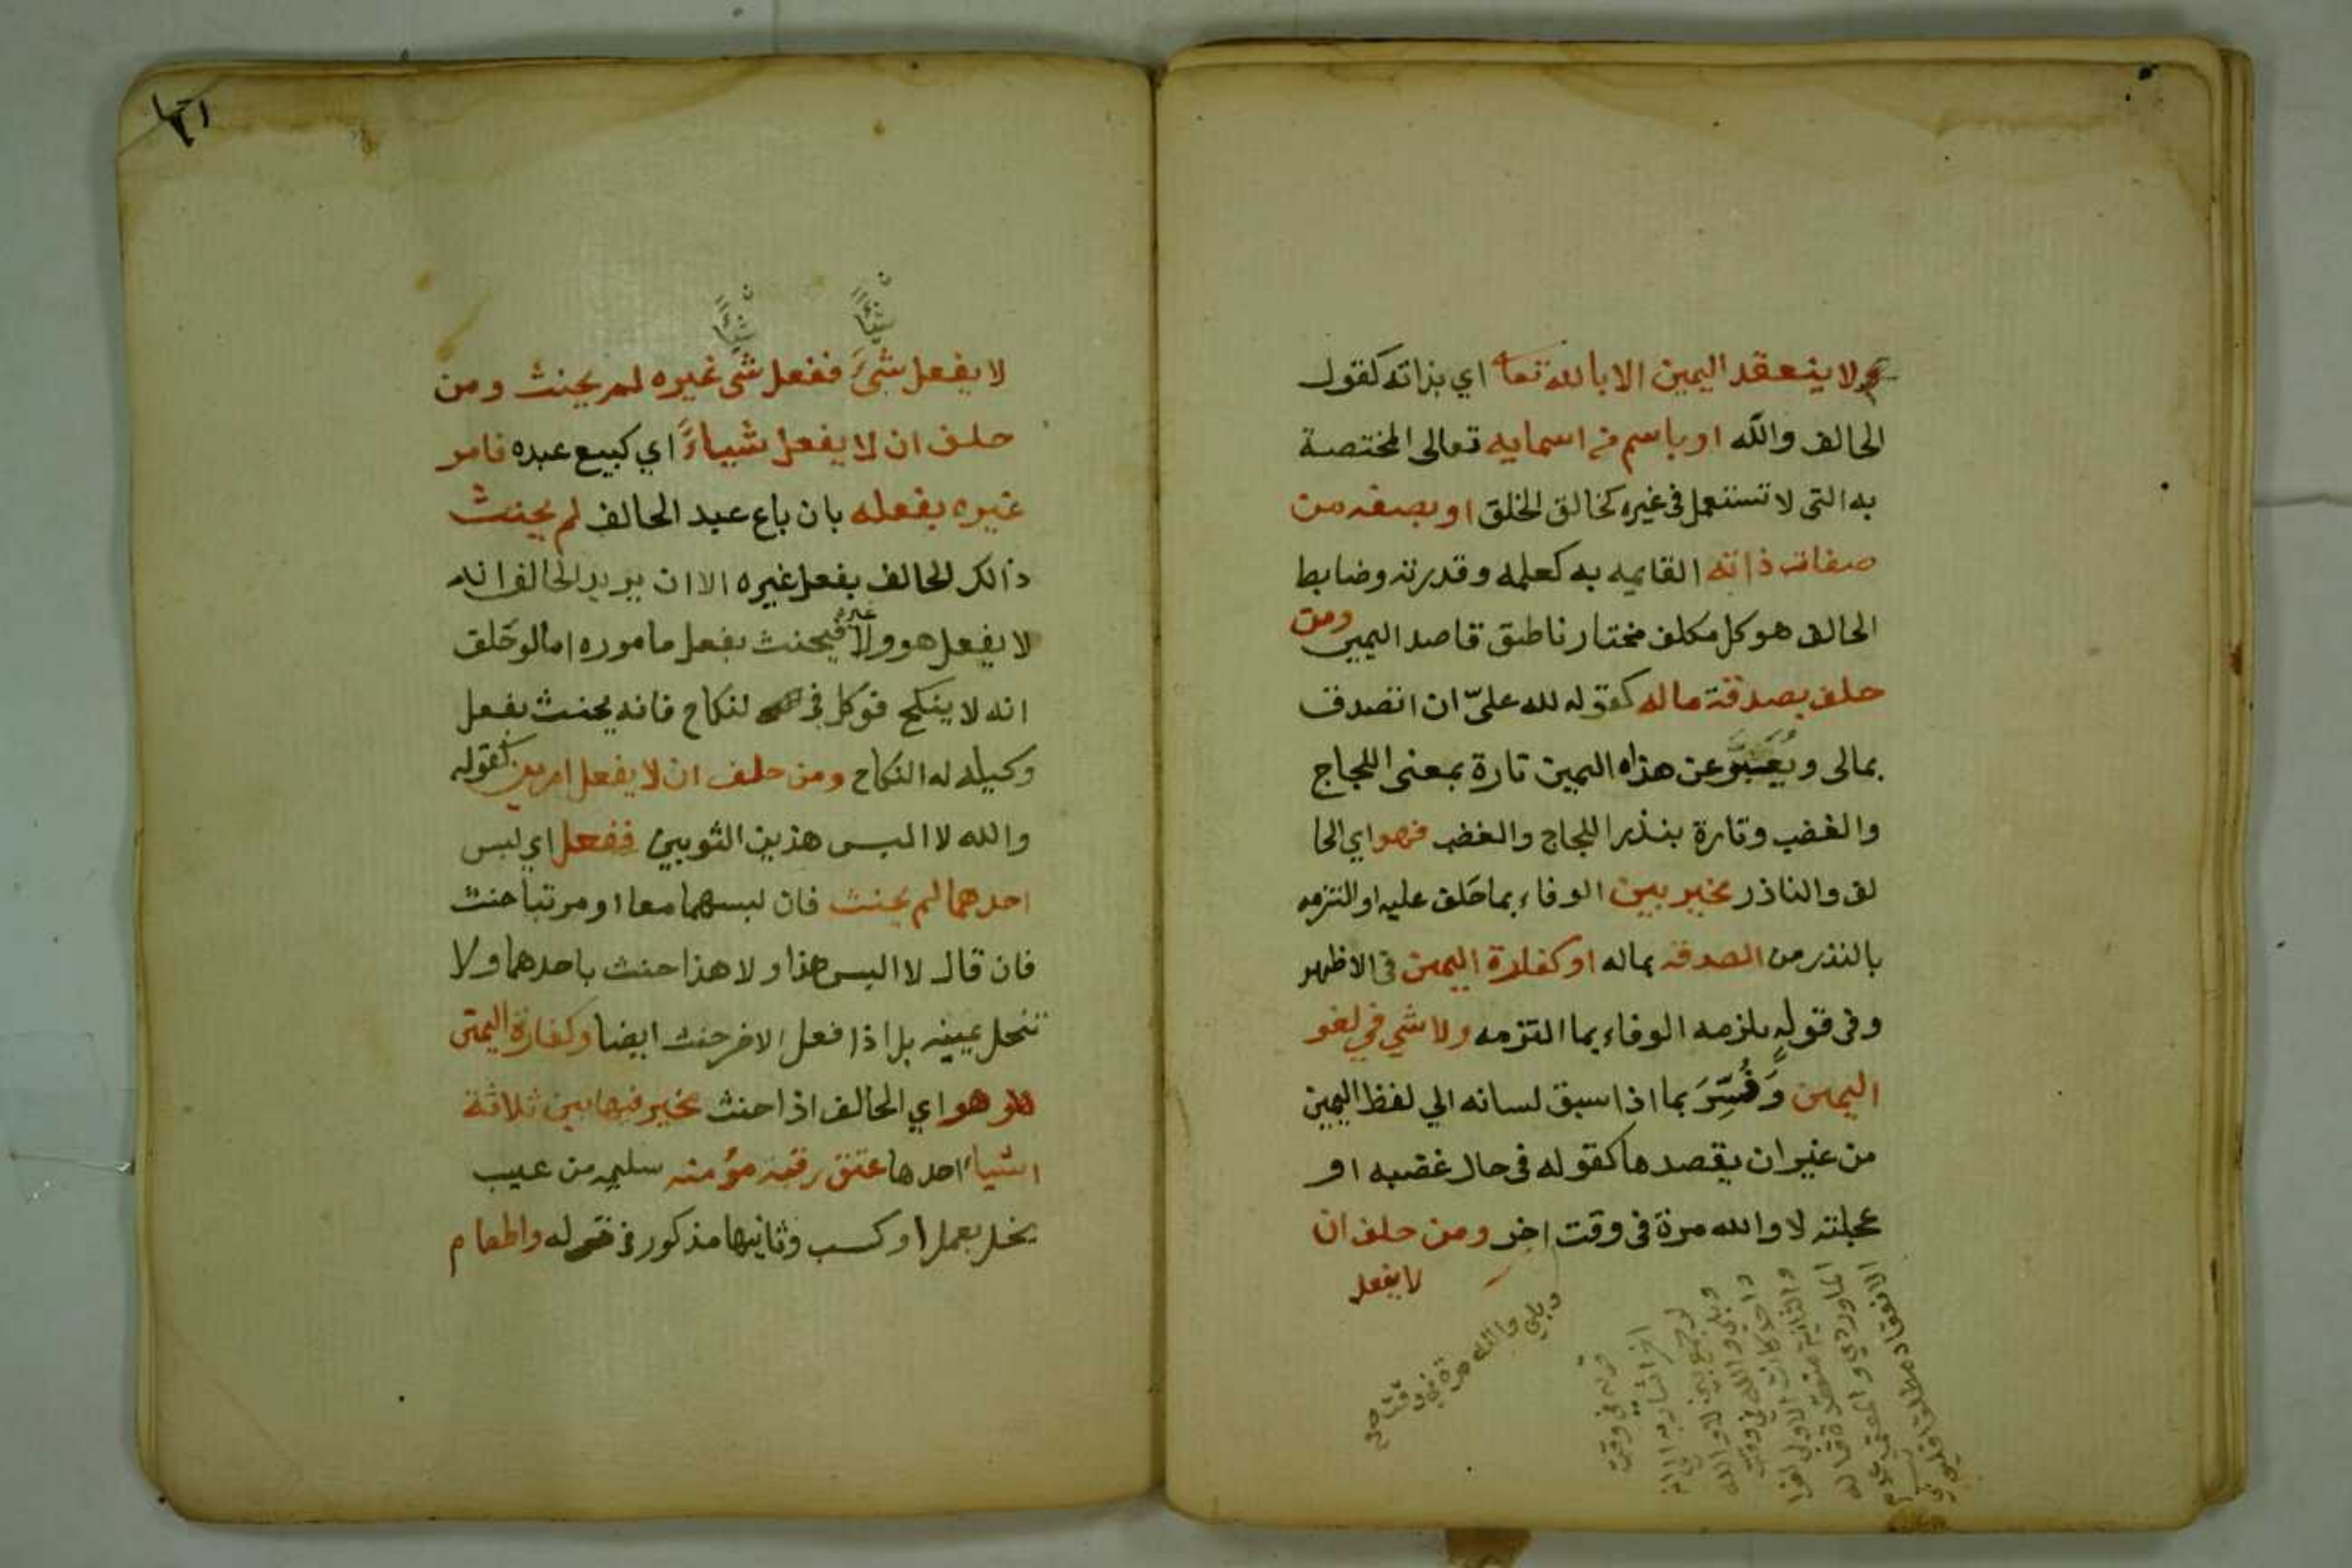 ولا ينعقد اليمين الا بالله تعا اي بذاته كقول
الحالف والله او باسم من اسمايه تعالى المختصة
به التى لا تستعمل فى غيره كخالق الخلق او بصفه من
صفات ذاته القايمه به كعلمه وقدرته وضابط
الحالف هو كل مكلف مختار ناطق قاصد اليمين ومن
حلف بصدقة ماله كقوله لله علىّ ان اتصدق
بمالى ويُعَبَّر عن هذاه اليمين تارة بمعنى اللجاج
والغضب وتارة بنذر اللجاج والغضب فهو اي الحا
لف والناذر مخير بين الوفاء بما حَلف عليه او التزمه
بالنذر من الصدقه بماله او كفارة اليمين فى الاظهر
وفى قولٍ يلزمه الوفاء بما التزمه ولا شي في لغو
اليمين وَفُسِّرَ بما اذا سبق لسانه الي لفظ اليمين
من غير ان يقصدها كقوله فى حال غضبه او
عجلته لا والله مرة فى وقت اخر ومن حلف ان
لا يفعل
وبلي والله مرة في وقت صح
١٢١
شيأً
شيأً
لا يفعل شىءً ففعل شى غيره لم يحنث ومن
حلف ان لا يفعل شيياءً اي كبيع عبده فامر
غيره بفعله بان باع عبد الحالف لم يحنث
ذالك الحالف بفعل غيره الا ان يريد الحالف انه
لا يفعل هو ولا غيره فيحنث بفعل ماموره اما لو حَلف
انه لا ينكح فوكل فى لنكاح فانه يحنث بفعل
وكيله له النكاح ومن حلف ان لا يفعل امرين كقوله
والله لا البس هذين الثوبين ففعل اي لبس
احدهما لم يحنث فان لبسهما معا او مرتبا حنث
فان قال لا البس هذا ولا هذا حنث باحدهما ولا
تنحل يمينه بل اذا فعل الاخر حنث ايضا وكفارة اليمين
هو اي الحالف اذا حنث مخير فيها بين ثلاثة
اشياء احدها عتق رقبه مؤمنه سليمه من عيب
يخل بعمل او كسب وثانيها مذكور فى قوله واطعام